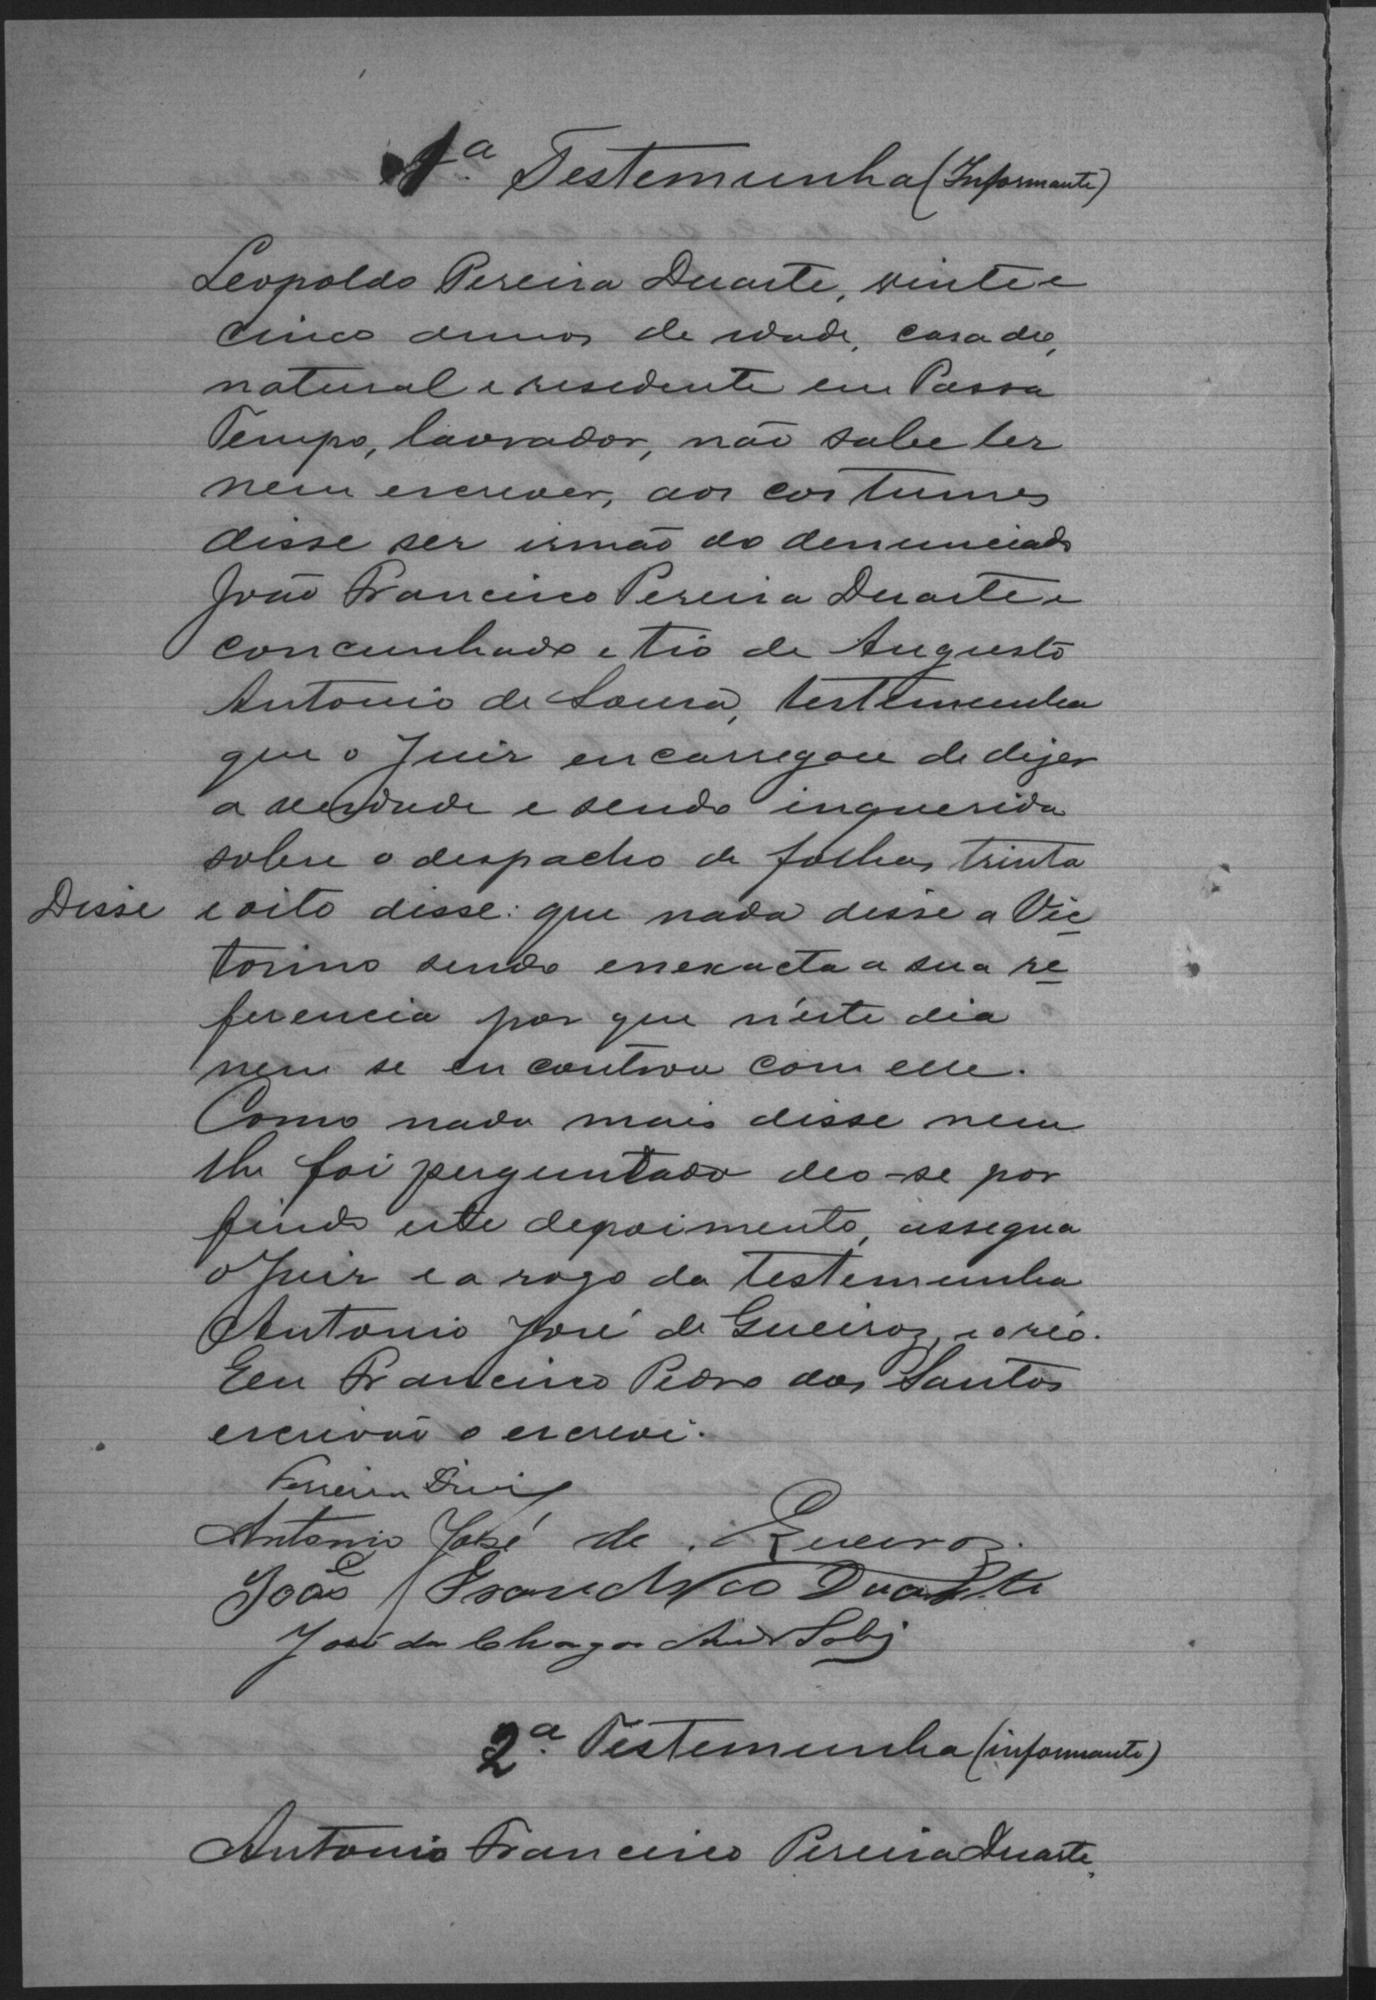 1ª Testemunha (Informante)
Leopoldo Pereira Duarte, vinte e
cinco annos de idade, casado,
natural e resedente em Passa
Tempo, lavrador, não sabe ler
nem escrever, aos costumes
disse ser irmão do denunciado
João Francisco Pereira Duarte e
concunhado e tio de Augusto
Antonio de Sousa, testemunha
que o Juiz encarregou de dizer
a verdade e sendo inquerida
sobre o despacho de folhas trinta
Disse e oito disse: que nada disse a Vic
torino sendo enexacta a sua re
ferencia por que n'este dia
nem se encontrou com elle.
Como nada mais disse nem
lhe foi perguntado deo-se por
findo este depoimento, assegna
o Juiz e a rogo da testemunha
Antonio José de Queiroz, e o réo.
Eu Francisco Pedro dos Santos
escrivão o escrevi.
Ferreira
Antonio José de Queiroz.
João Francisco Duarte
José das Chagas
2ª Testemunha (informante)
Antonio Francisco Pereira Duarte,